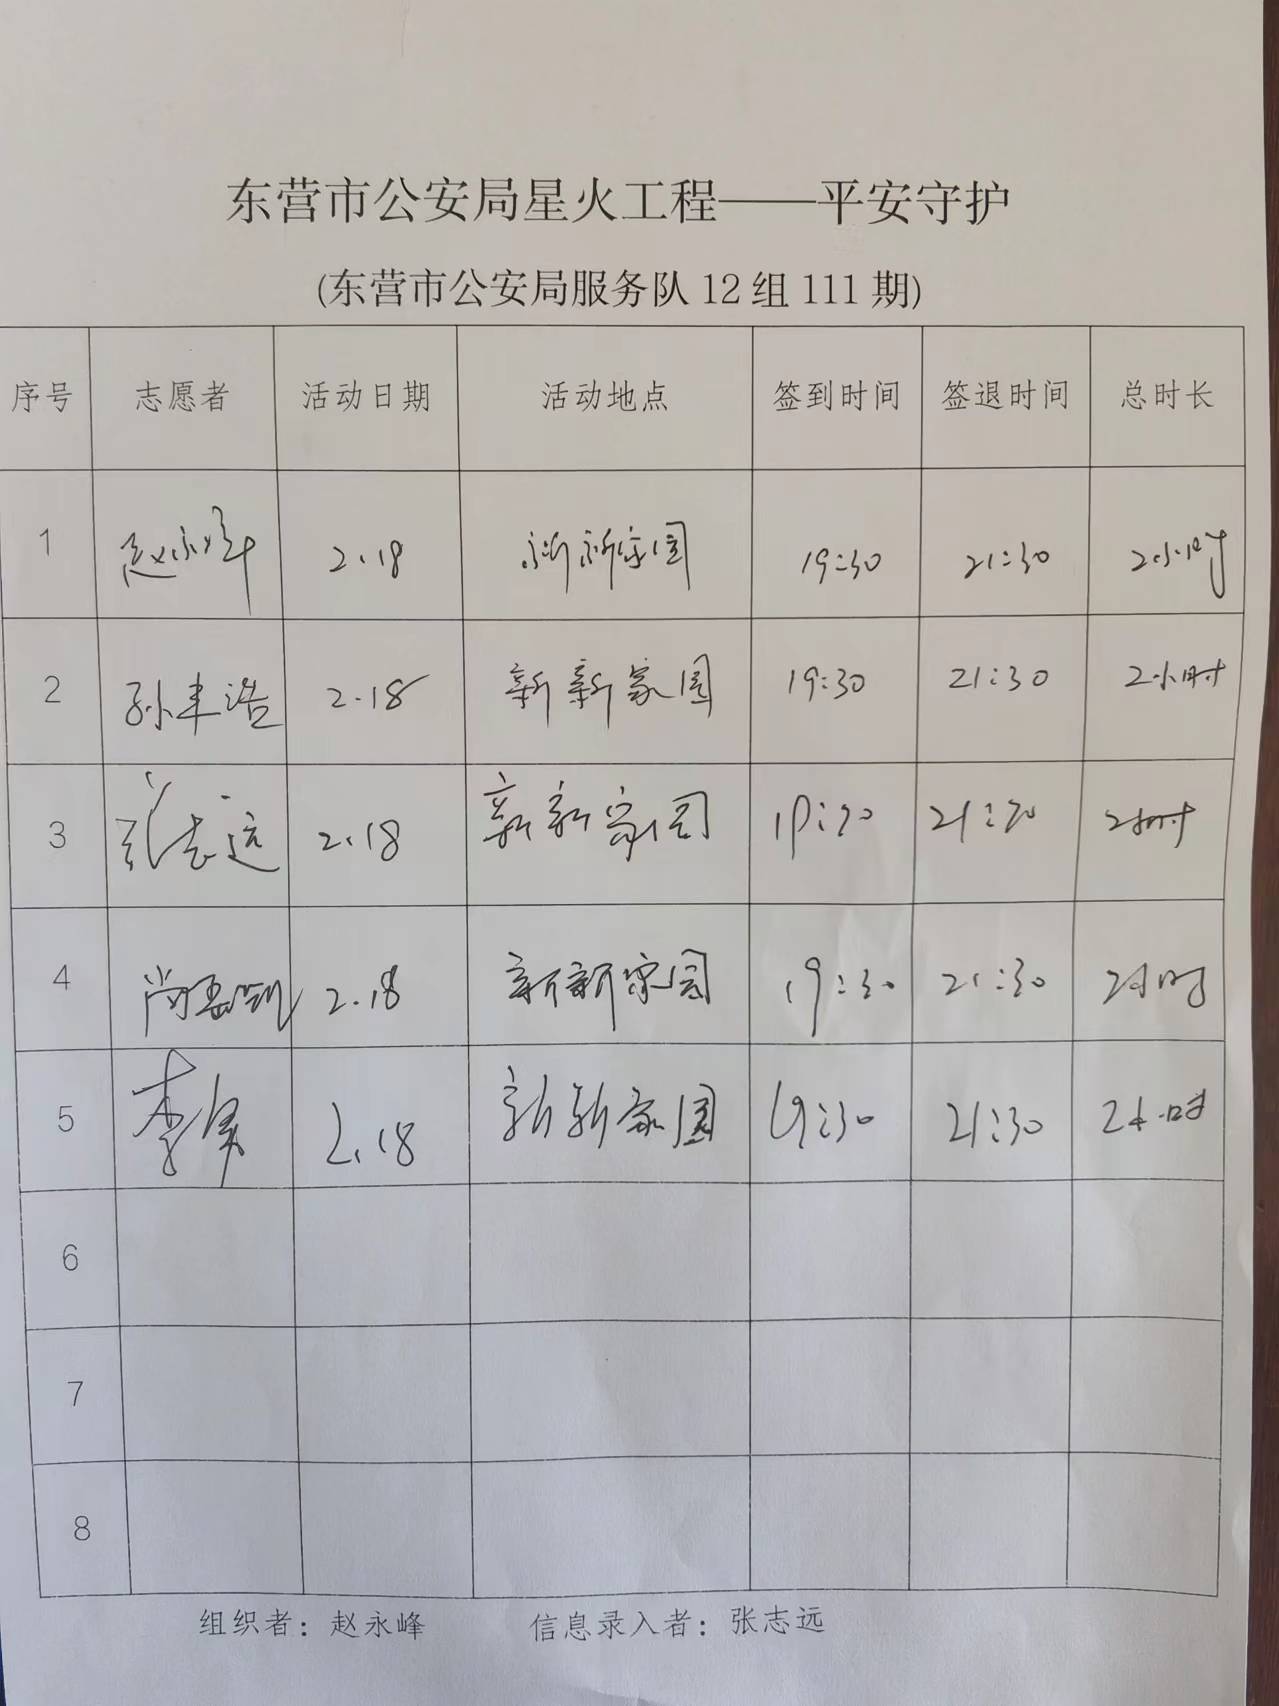 东营市公安局星火工程——平安守护
(东营市公安局服务队12组111期)
序号 志愿者 活动日期 活动地点 签到时间 签退时间 总时长
1 赵永峰 2.18 新新家园 19:30 21:30 2小时
2 孙丰浩 2.18 新新家园 19:30 21:30 2小时
3 张志远 2.18 新新家园 19:30 21:30 2小时
4 尚 2.18 新新家园 19:30 21:30 2小时
5 李 2.18 新新家园 19:30 21:30 2小时
6
7
8
组织者：赵永峰 信息录入者：张志远